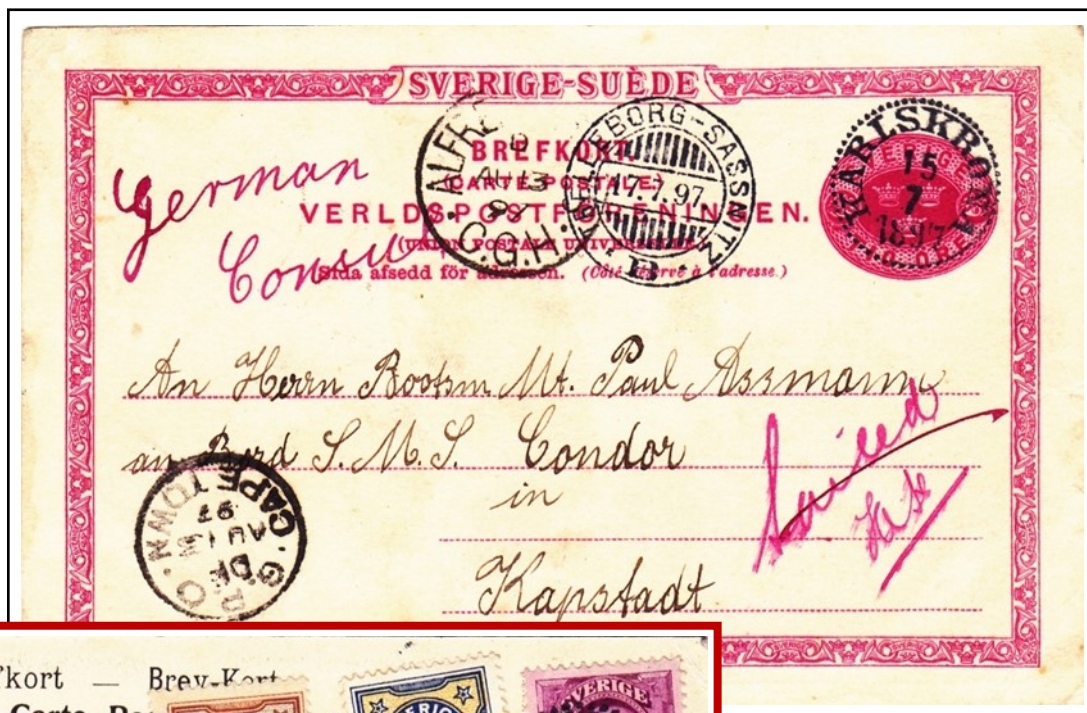 SVERIGE-SUÈDE
BREFKORT.
(CARTE POSTALE.)
VERLDSPOSTFÖRENINGEN.
(UNION POSTALE UNIVERSELLE.)
Sida afsedd för adressen. (Côté réservé à l'adresse.)
German
Consul
ALFRE D
AU 13
97
C.G.H.
TRELLEBORG-SASSNITZ
17.7.97
B
KARLSKRONA
15
7
1897
An Herrn Bootsm. Mt. Paul Assmann
an Bord S. M. S. Condor
in
Kapstadt
Sailed
G.P.O. CAPE TOWN
AU 13
97
fkort — Brev-Kort
Carte Po
SVERIGE